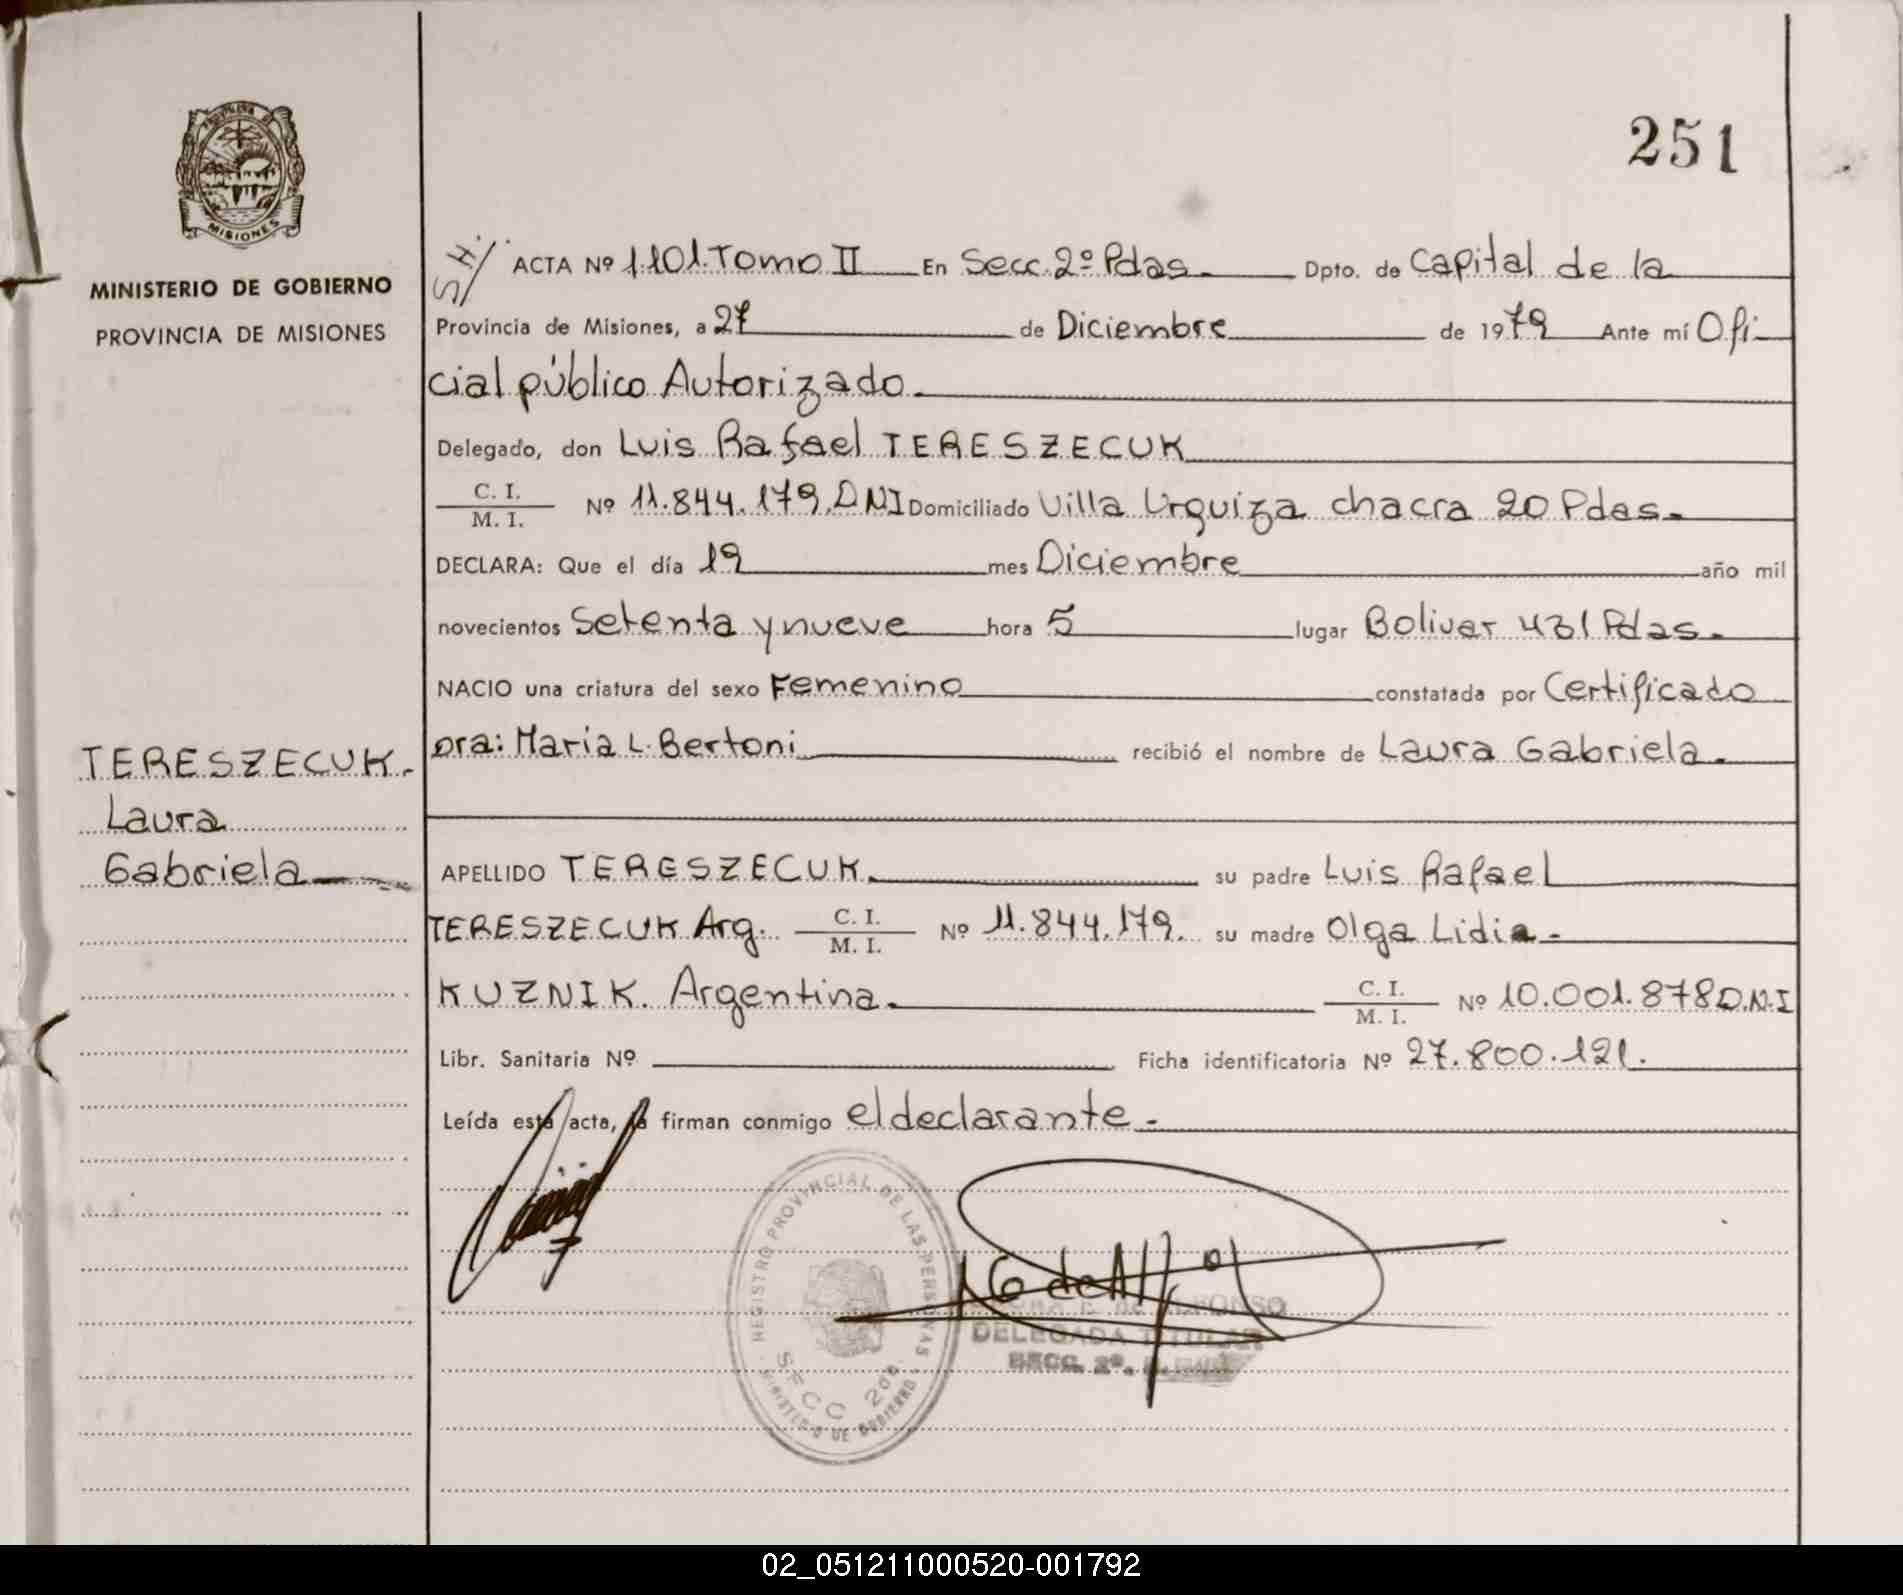 251
MISIONES
MINISTERIO DE GOBIERNO
PROVINCIA DE MISIONES
TERESZECUK.
Laura
Gabriela
S.H./. ACTA Nº 1.101. Tomo II En Secc. 2º Pdas. Dpto. de Capital de la
Provincia de Misiones, a 27 de Diciembre de 1979 Ante mí Ofi
cial público Autorizado.
Delegado, don Luis Rafael TERESZECUK
C. I. / M. I. Nº 11.844.179. D.N.I Domiciliado Villa Urquiza chacra 20 Pdas.
DECLARA: Que el día 19 mes Diciembre año mil
novecientos Setenta y nueve hora 5 lugar Bolivar 431 Pdas.
NACIO una criatura del sexo Femenino constatada por Certificado
ora: Maria L. Bertoni recibió el nombre de Laura Gabriela.
APELLIDO TERESZECUK. su padre Luis Rafael
TERESZECUK Arg. C. I. / M. I. Nº 11.844.179. su madre Olga Lidia.
KUZNIK. Argentina. C. I. / M. I. Nº 10.001.878 D.N.I
Libr. Sanitaria Nº Ficha identificatoria Nº 27.800.121.
Leída esta acta, la firman conmigo el declarante.
REGISTRO PROVINCIAL DE LAS PERSONAS
SECC 2da
MINISTERIO DE GOBIERNO
de ALFONSO
DELEGADA TITULAR
SECC. 2º.
02_051211000520-001792